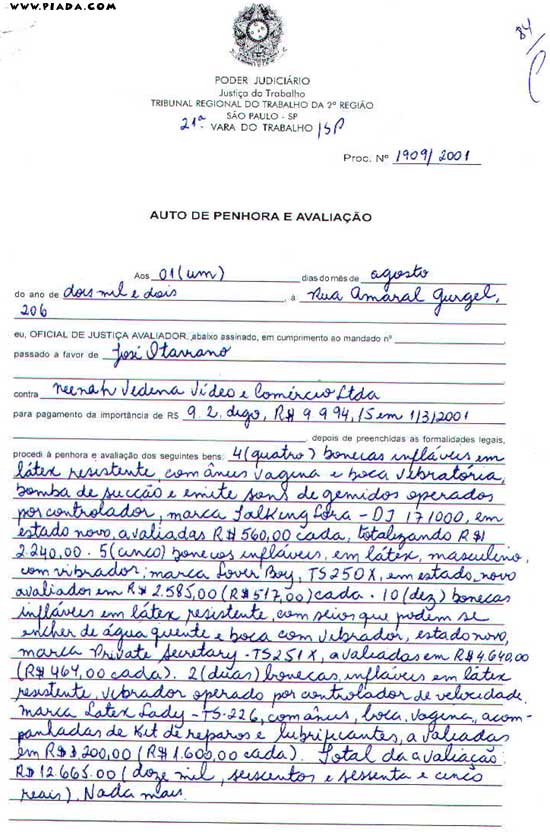 WWW.PIADA.COM
84
PODER JUDICIÁRIO
Justiça do Trabalho
TRIBUNAL REGIONAL DO TRABALHO DA 2ª REGIÃO
SÃO PAULO - SP
21ª VARA DO TRABALHO /SP
Proc. Nº 1909/2001
AUTO DE PENHORA E AVALIAÇÃO
Aos 01 (um) dias do mês de agosto
do ano de dois mil e dois, à Rua Amaral Gurgel,
206
eu, OFICIAL DE JUSTIÇA AVALIADOR, abaixo assinado, em cumprimento ao mandado nº
passado a favor de José Otaviano
contra Neenah Vedena Vídeo e Comércio Ltda
para pagamento da importância de R$ 9.2, digo, R$ 9994,15 em 1/3/2001
, depois de preenchidas as formalidades legais,
procedi à penhora e avaliação dos seguintes bens: 4 (quatro) bonecas infláveis em
látex resistente, com ânus vagina e boca vibratória,
bomba de sucção e emite sons de gemidos operados
por controlador, marca Talking Lora - DJ 171000, em
estado novo, avaliadas R$560,00 cada, totalizando R$
2.240,00. 5 (cinco) bonecos infláveis, em látex, masculino,
com vibrador, marca Lover Boy, TS250X, em estado novo
avaliados em R$ 2.585,00 (R$517,00) cada. 10 (dez) bonecas
infláveis em látex resistente, com seios que podem se
encher de água quente e boca com vibrador, estado novo,
marca Private Secretary - TS251X, avaliadas em R$4.640,00
(R$464,00 cada). 2 (duas) bonecas, infláveis em látex
resistente, vibrador operado por controlador de velocidade.
marca Latex Lady - TS-226, com ânus, boca, vagina, acom-
panhadas de kit de reparos e lubrificantes, avaliadas
em R$3.200,00 (R$1.600,00 cada). Total da avaliação:
R$12.665.00 (doze mil, seiscentos e sessenta e cinco
reais). Nada mais.